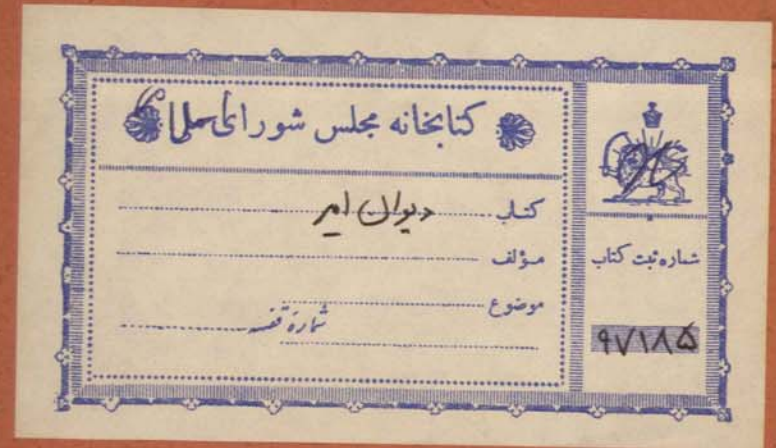 کتابخانه مجلس شورای ملی
کتاب دیوان امیر
مؤلف
موضوع
شمارهٔ قفسه
شماره ثبت کتاب
۹۷۱۸۵